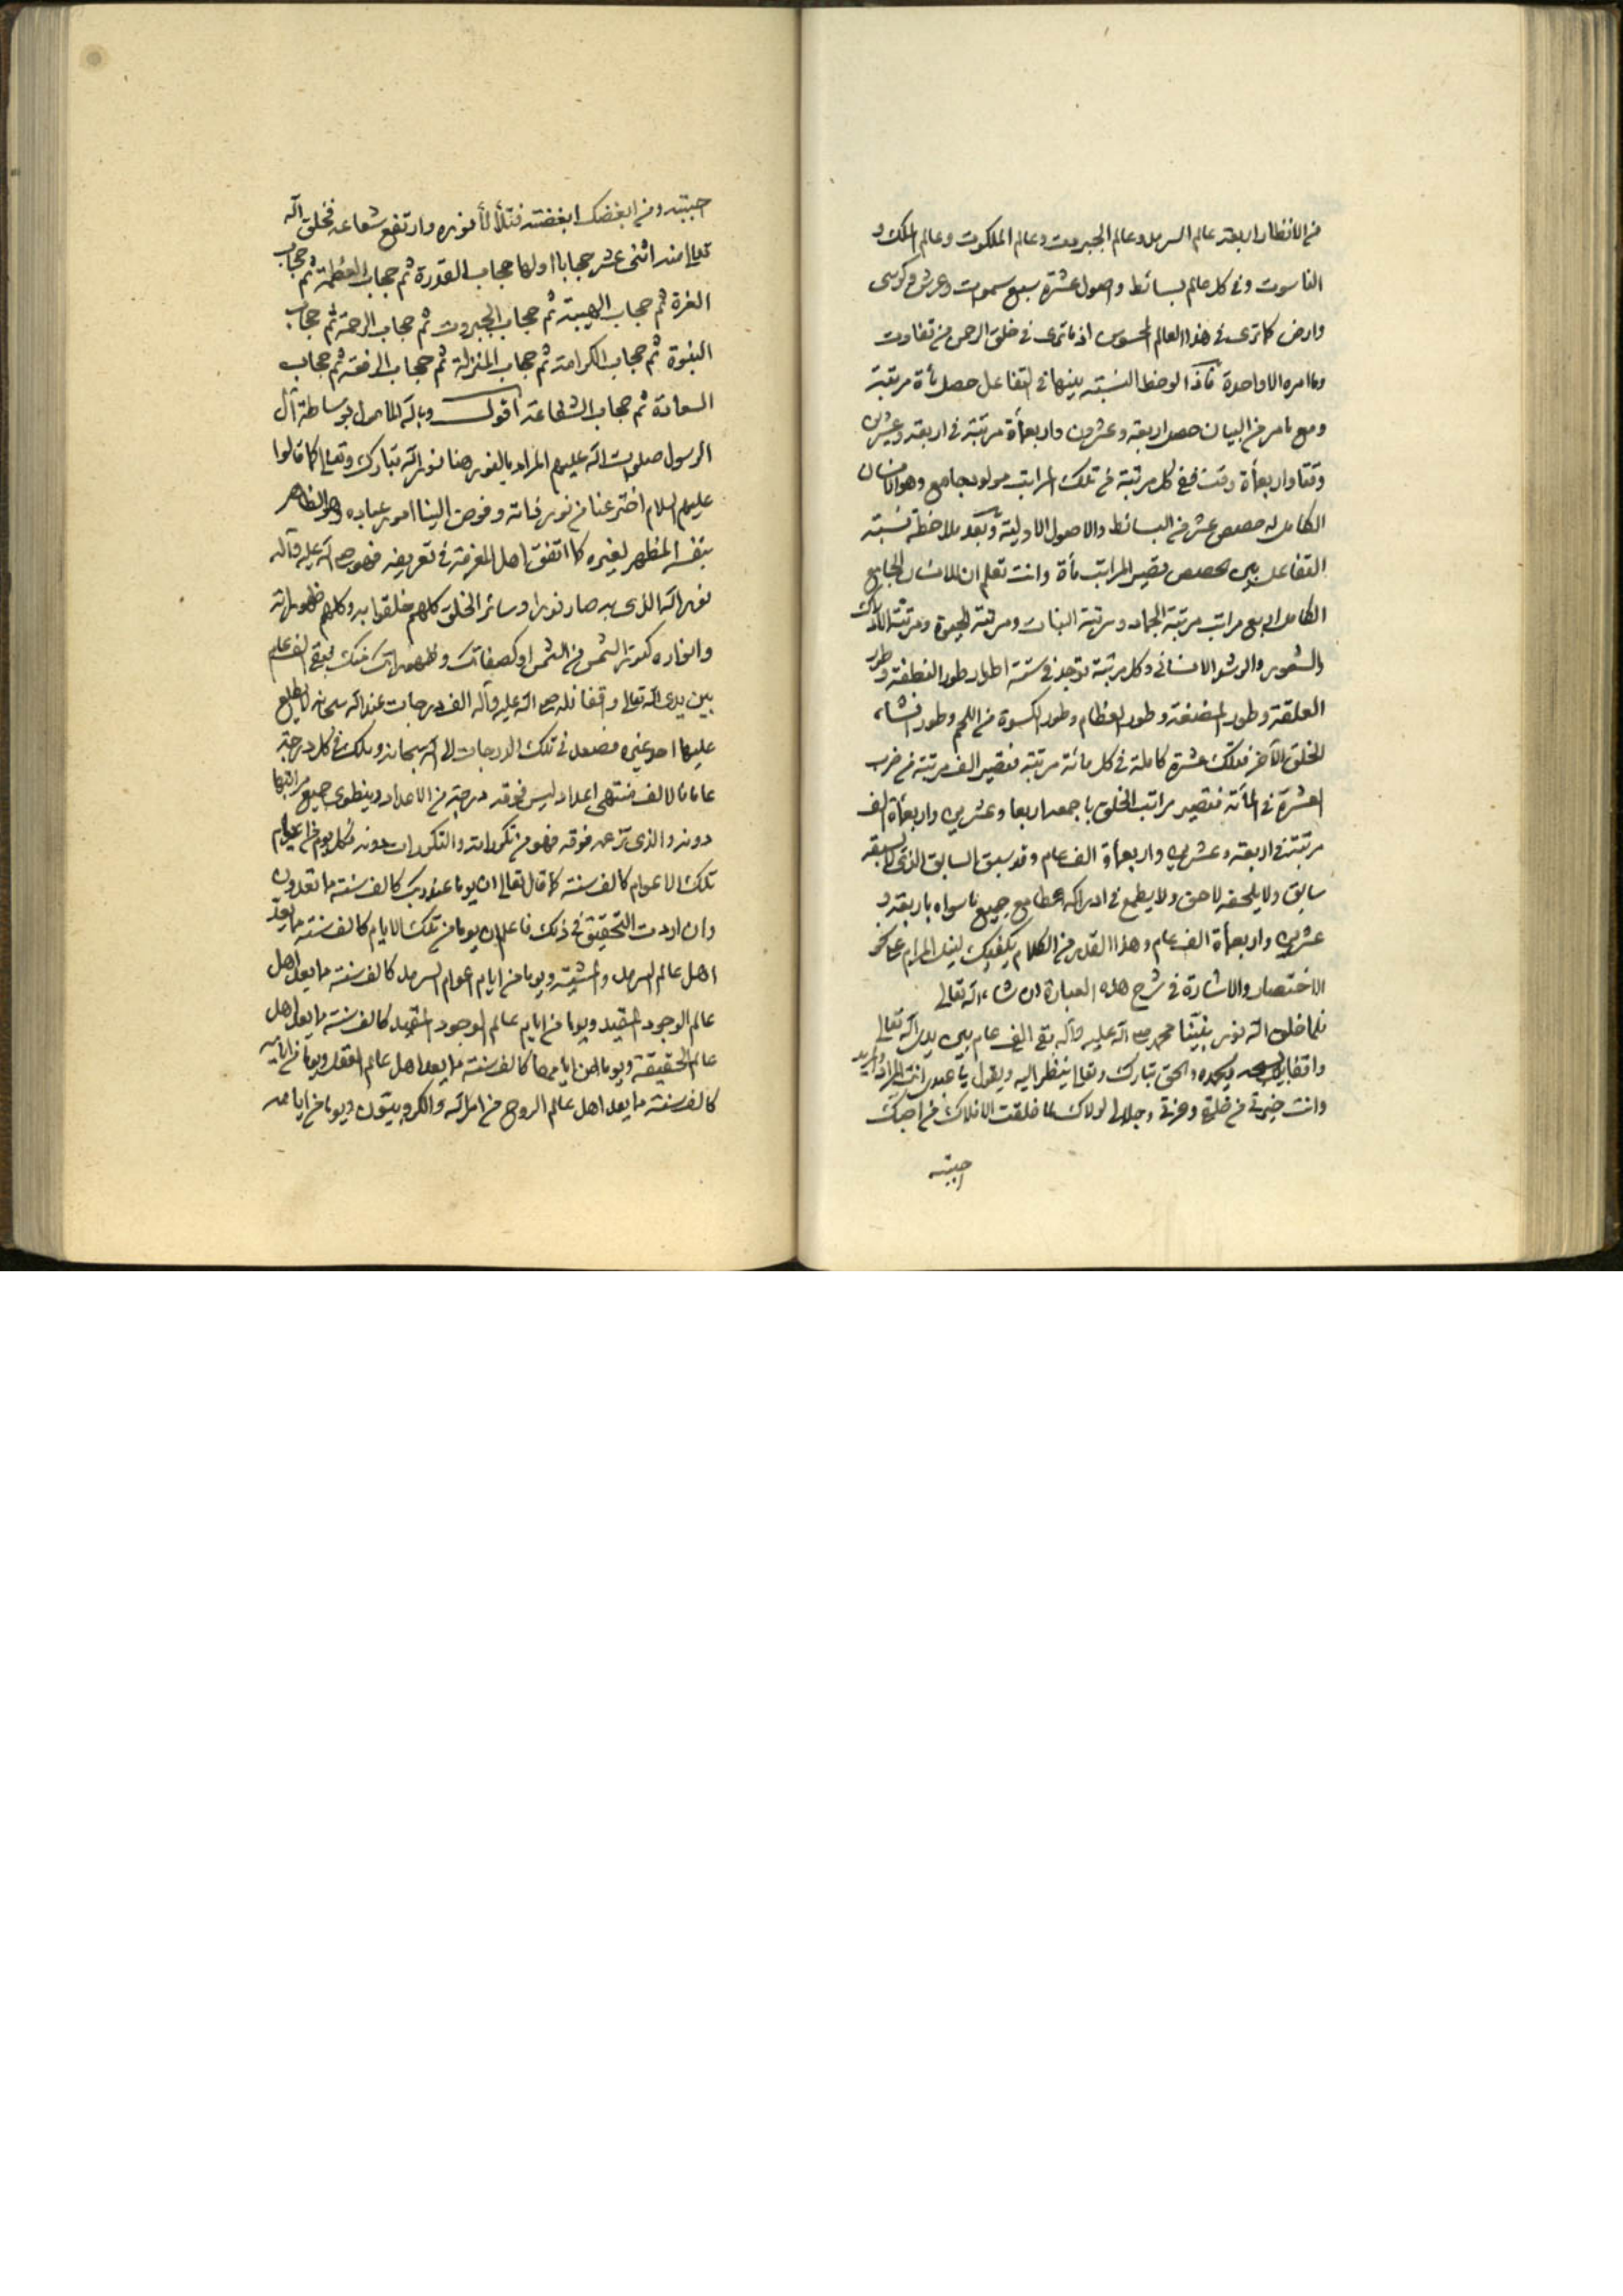 من الانظار اربعة عالم السرمد وعالم الجبروت وعالم الملكوت وعالم الملك و
الناسوت وفي كل عالم بسائط واصول عشرة سبع سموات وعرش وكرسى
وارض كما ترى في هذا العالم المحسوس اذ ما ترى في خلق الرحمن من تفاوت
وما امره الا واحدة فاذا لوحظ النسبة بينها في التفاعل حصل مأة مرتبة
ومع ما مر من البيان حصل اربعة وعشرون واربعمأة مرتبة في اربعة وعشرين
وقتا واربعمأة وقت ففي كل مرتبة من تلك المراتب مولود جامع وهو الانسان
الكامل له حصص عشر من البسائط والاصول الاولية وبعد ملاحظة نسبة
التفاعل بين الحصص تصير المراتب مأة وانت تعلم ان للانسان الجامع
الكامل اربع مراتب مرتبة الجماد ومرتبة النبات ومرتبة الحيوة ومرتبة الادراك
والشعور والرشد الانسانى وكل مرتبة توجد في ستة اطوار طور النطفة وطور
العلقة وطور المضغة وطور العظام وطور اكسوة من اللحم وطور انشاء
الخلق الآخر فتلك عشرة كاملة في كل مائة مرتبة فتصير الف مرتبة من ضرب
العشرة في المأة فتصير مراتب الخلق باجمعه اربعا وعشرين واربعمأة الف
مرتبة في اربعة وعشرين واربعمأة الف عام وقد سبق السابق الذى لا يسبقه
سابق ولا يلحقه لاحق ولا يطمع في ادراكه طامع جميع ما سواه باربعة و
عشرين واربعمأة الف عام وهذا القدر من الكلام يكفيك لنيل المرام على نحو
الاختصار والاشارة في شرح هذه العبارة ان شاء الله تعالى
فلما خلق الله نور نبينا محمد صلى الله عليه وآله بقى الف عام بين يدى الله تعالى
واقفا يسبحه ويحمده والحق تبارك وتعالى ينظر اليه ويقول يا عبدى انت المراد والمريد
وانت خيرتى من خلقى وعزتى وجلالى لولاك لما خلقت الافلاك من احبك
احببته
احببته ومن ابغضك ابغضته فتلألأ نوره وارتفع شعاعه فخلق الله
تعالى منه اثنى عشر حجابا اولها حجاب القدرة ثم حجاب العظمة ثم حجاب
العزة ثم حجاب الهيبة ثم حجاب الجبروت ثم حجاب الرحمة ثم حجاب
النبوة ثم حجاب الكرامة ثم حجاب المنزلة ثم حجاب الرفعة ثم حجاب
السعادة ثم حجاب الشفاعة اقول وبالله المامول بوساطة آل
الرسول صلوات الله عليهم المراد بالنور هنا نور الله تبارك وتعالى كما قالوا
عليهم السلام اخترعنا من نور ذاته وفوض الينا امور عباده وهو الظاهر
بنفسه المظهر لغيره كما اتفق اهل المعرفة في تعريفه فهو صلى الله عليه وآله
نور الله الذى به صار نورا وسائر الخلق كلهم خلقوا به وكلهم ظهوراته
وانواره كنور الشمس من الشمس او كصفاتك وظهوراتك منك فبقى الف عام
بين يدى الله تعالى واقفا فله صلى الله عليه وآله الف درجات عند الله سبحانه لا يطلع
عليها احد غيره فصعد في تلك الدرجات الى الله سبحانه وسلك في كل درجة
عاما فالالف منتهى اعداد ليس فوقه درجة من الاعداد وينطوى جميع مراتبها
دونه والذى تزعمه فوقه فهو من تكراراته والتكرارات دونه فكل يوم من ايام
تلك الاعوام كالف سنة كما قال تعالى ان يوما عند ربك كالف سنة مما تعدون
وان اردت التحقيق في ذلك فاعلم ان يوما من تلك الايام كالف سنة مما يعد
اهل عالم السرمد والمشية ويوما من ايام اعوام السرمد كالف سنة مما يعد اهل
عالم الوجود المقيد ويوما من ايام عالم الوجود المقيد كالف سنة مما يعد اهل
عالم الحقيقة ويوما من ايامها كالف سنة مما يعد اهل عالم العقل ويوما من ايامه
كالف سنة مما يعد اهل عالم الروح من الملائكة والكروبيون ويوما من ايامه